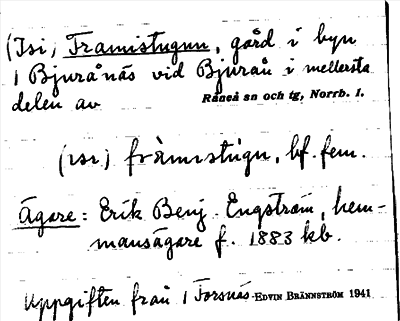 (Isi) Framistugun, gård i byn
1 Bjurånäs vid Bjurån i mellersta
delen av Råneå sn och tg, Norrb. l.
(isi) fràmıstùgn, bf. fem.
Ägare: Erik Benj. Engström, hem-
mansägare f. 1883 kb.
Uppgiften från 1 Forsnäs EDVIN BRÄNNSTRÖM 1941